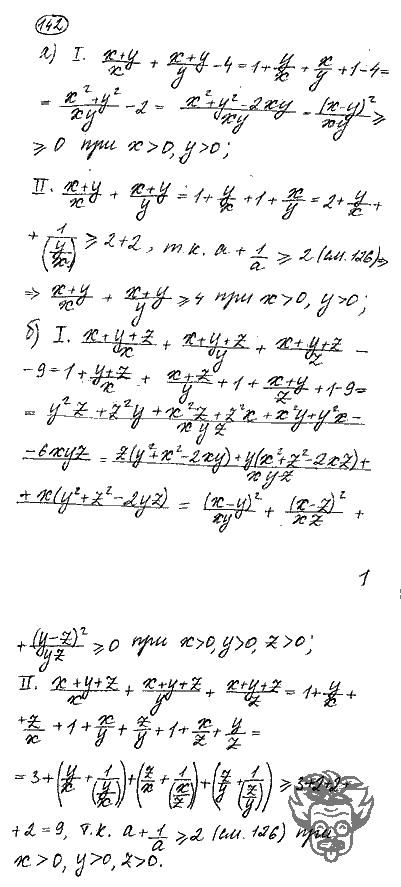 142
а) I. (x+y)/x + (x+y)/y - 4 = 1 + y/x + x/y + 1 - 4 =
= (x²+y²)/xy - 2 = (x²+y²-2xy)/xy = (x-y)²/xy ≥
≥ 0 при x>0, y>0;
II. (x+y)/x + (x+y)/y = 1 + y/x + 1 + x/y = 2 + y/x +
+ 1/(y/x) ≥ 2+2, т.к. a + 1/a ≥ 2 (см. 126) ⇒
⇒ (x+y)/x + (x+y)/y ≥ 4 при x>0, y>0;
б) I. (x+y+z)/x + (x+y+z)/y + (x+y+z)/z -
- 9 = 1 + (y+z)/x + (x+z)/y + 1 + (x+y)/z + 1 - 9 =
= y²z + z²y + x²z + z²x + x²y + y²x - / xyz
- 6xyz = z(y²+x²-2xy) + y(x²+z²-2xz) + / xyz
+ x(y²+z²-2yz) = (x-y)²/xy + (x-z)²/xz +
1
+ (y-z)²/yz ≥ 0 при x>0, y>0, z>0;
II. (x+y+z)/x + (x+y+z)/y + (x+y+z)/z = 1 + y/x +
+ z/x + 1 + x/y + z/y + 1 + x/z + y/z =
= 3 + (y/x + 1/(y/x)) + (z/x + 1/(x/z)) + (z/y + 1/(z/y)) ≥ 3+2+2+
+ 2 = 9, т.к. a + 1/a ≥ 2 (см. 126) при
x>0, y>0, z>0.